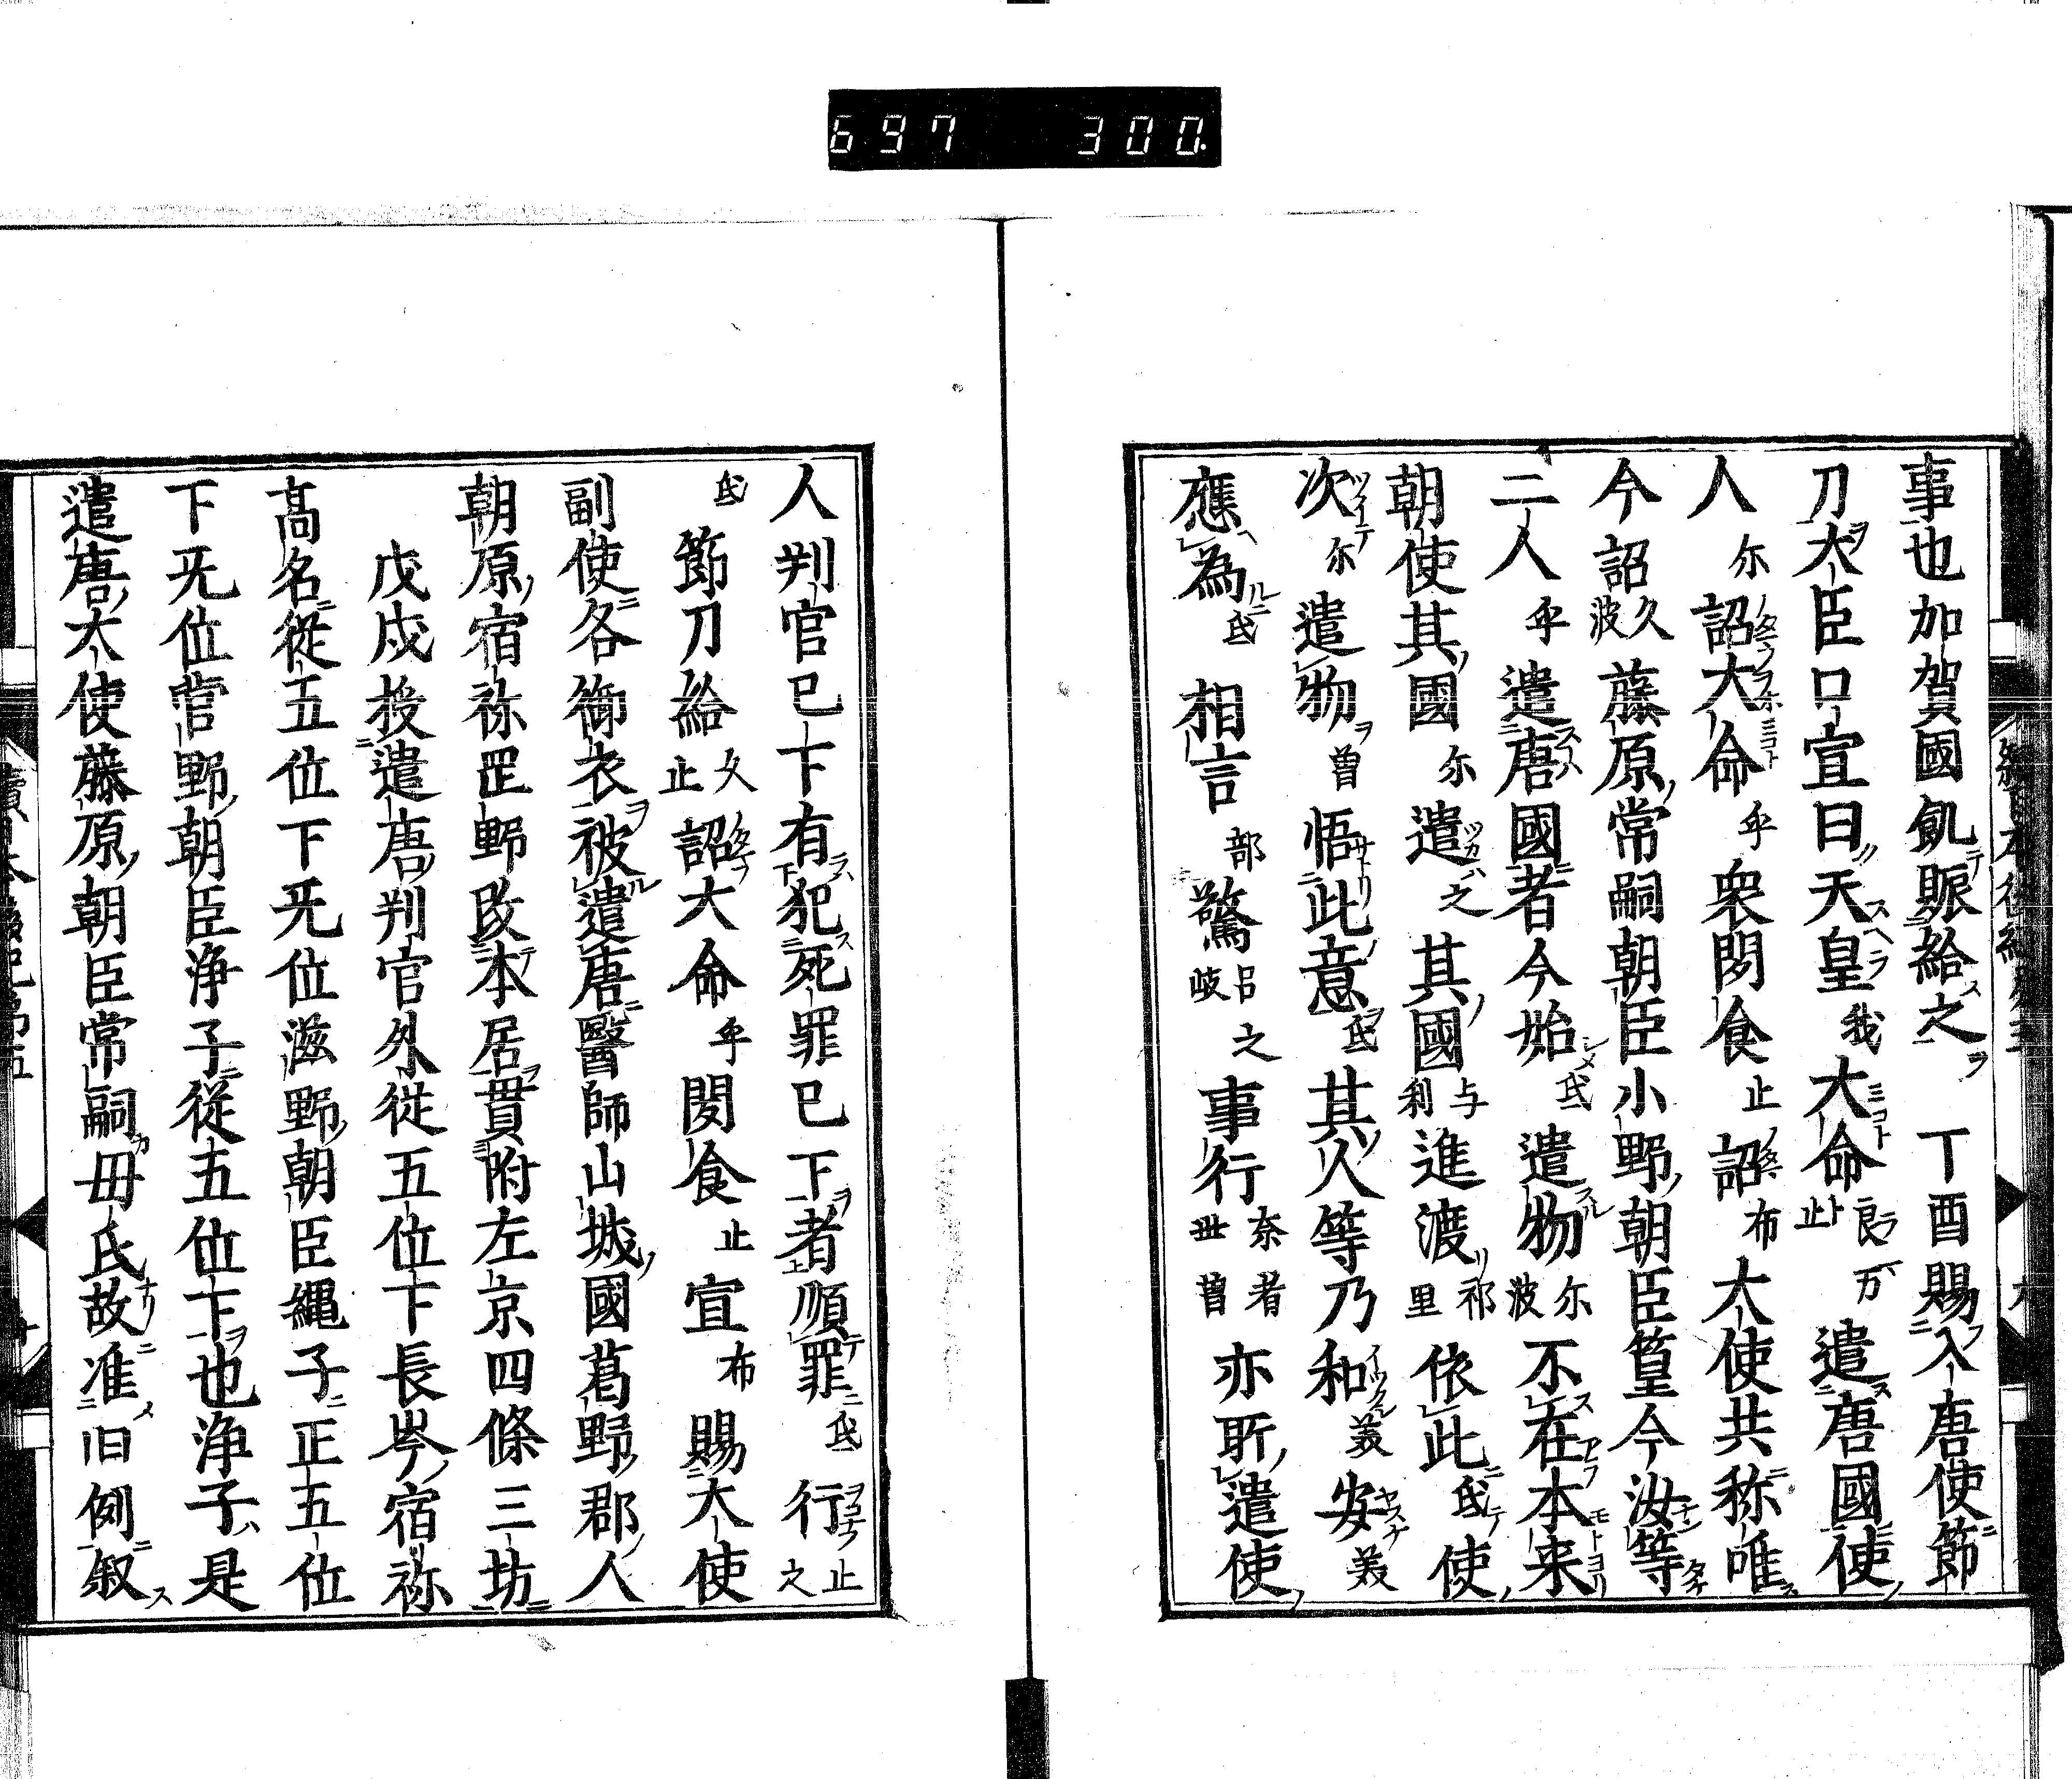 697 300.
事也加賀國飢賑給之丁酉賜入唐使節
刀大臣口宣曰天皇我大命良止万遣唐國使
人尓詔大命乎衆聞食止詔布大使共称唯
今詔久波藤原常嗣朝臣小野朝臣篁今汝等
二人乎遣唐國者今始氐遣物尓波不在本来
朝使其國尓遣之其國与利進渡祁里依此氐使
次尓遣物曽悟此意氐其人等乃和美安美
應為氐相言部驚呂岐之事行奈世者曽亦所遣使
人判官已下有犯死罪已下者順罪氐行止之
氐節刀給久止詔大命乎聞食止宣布賜大使
副使各御衣被遣唐醫師山城國葛野郡人
朝原宿祢岡野改本居貫附左京四條三坊
戊戌授遣唐判官外従五位下長岑宿祢
髙名従五位下无位滋野朝臣繩子正五位
下无位菅野朝臣浄子従五位下也浄子是
遣唐大使藤原朝臣常嗣母氏故准旧例叙